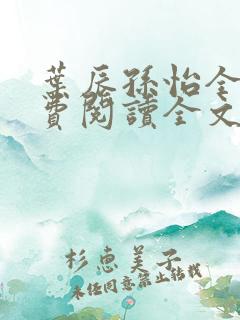 葉辰孫怡全
費閱讀全文
杉恵美子
未经同意禁止转载